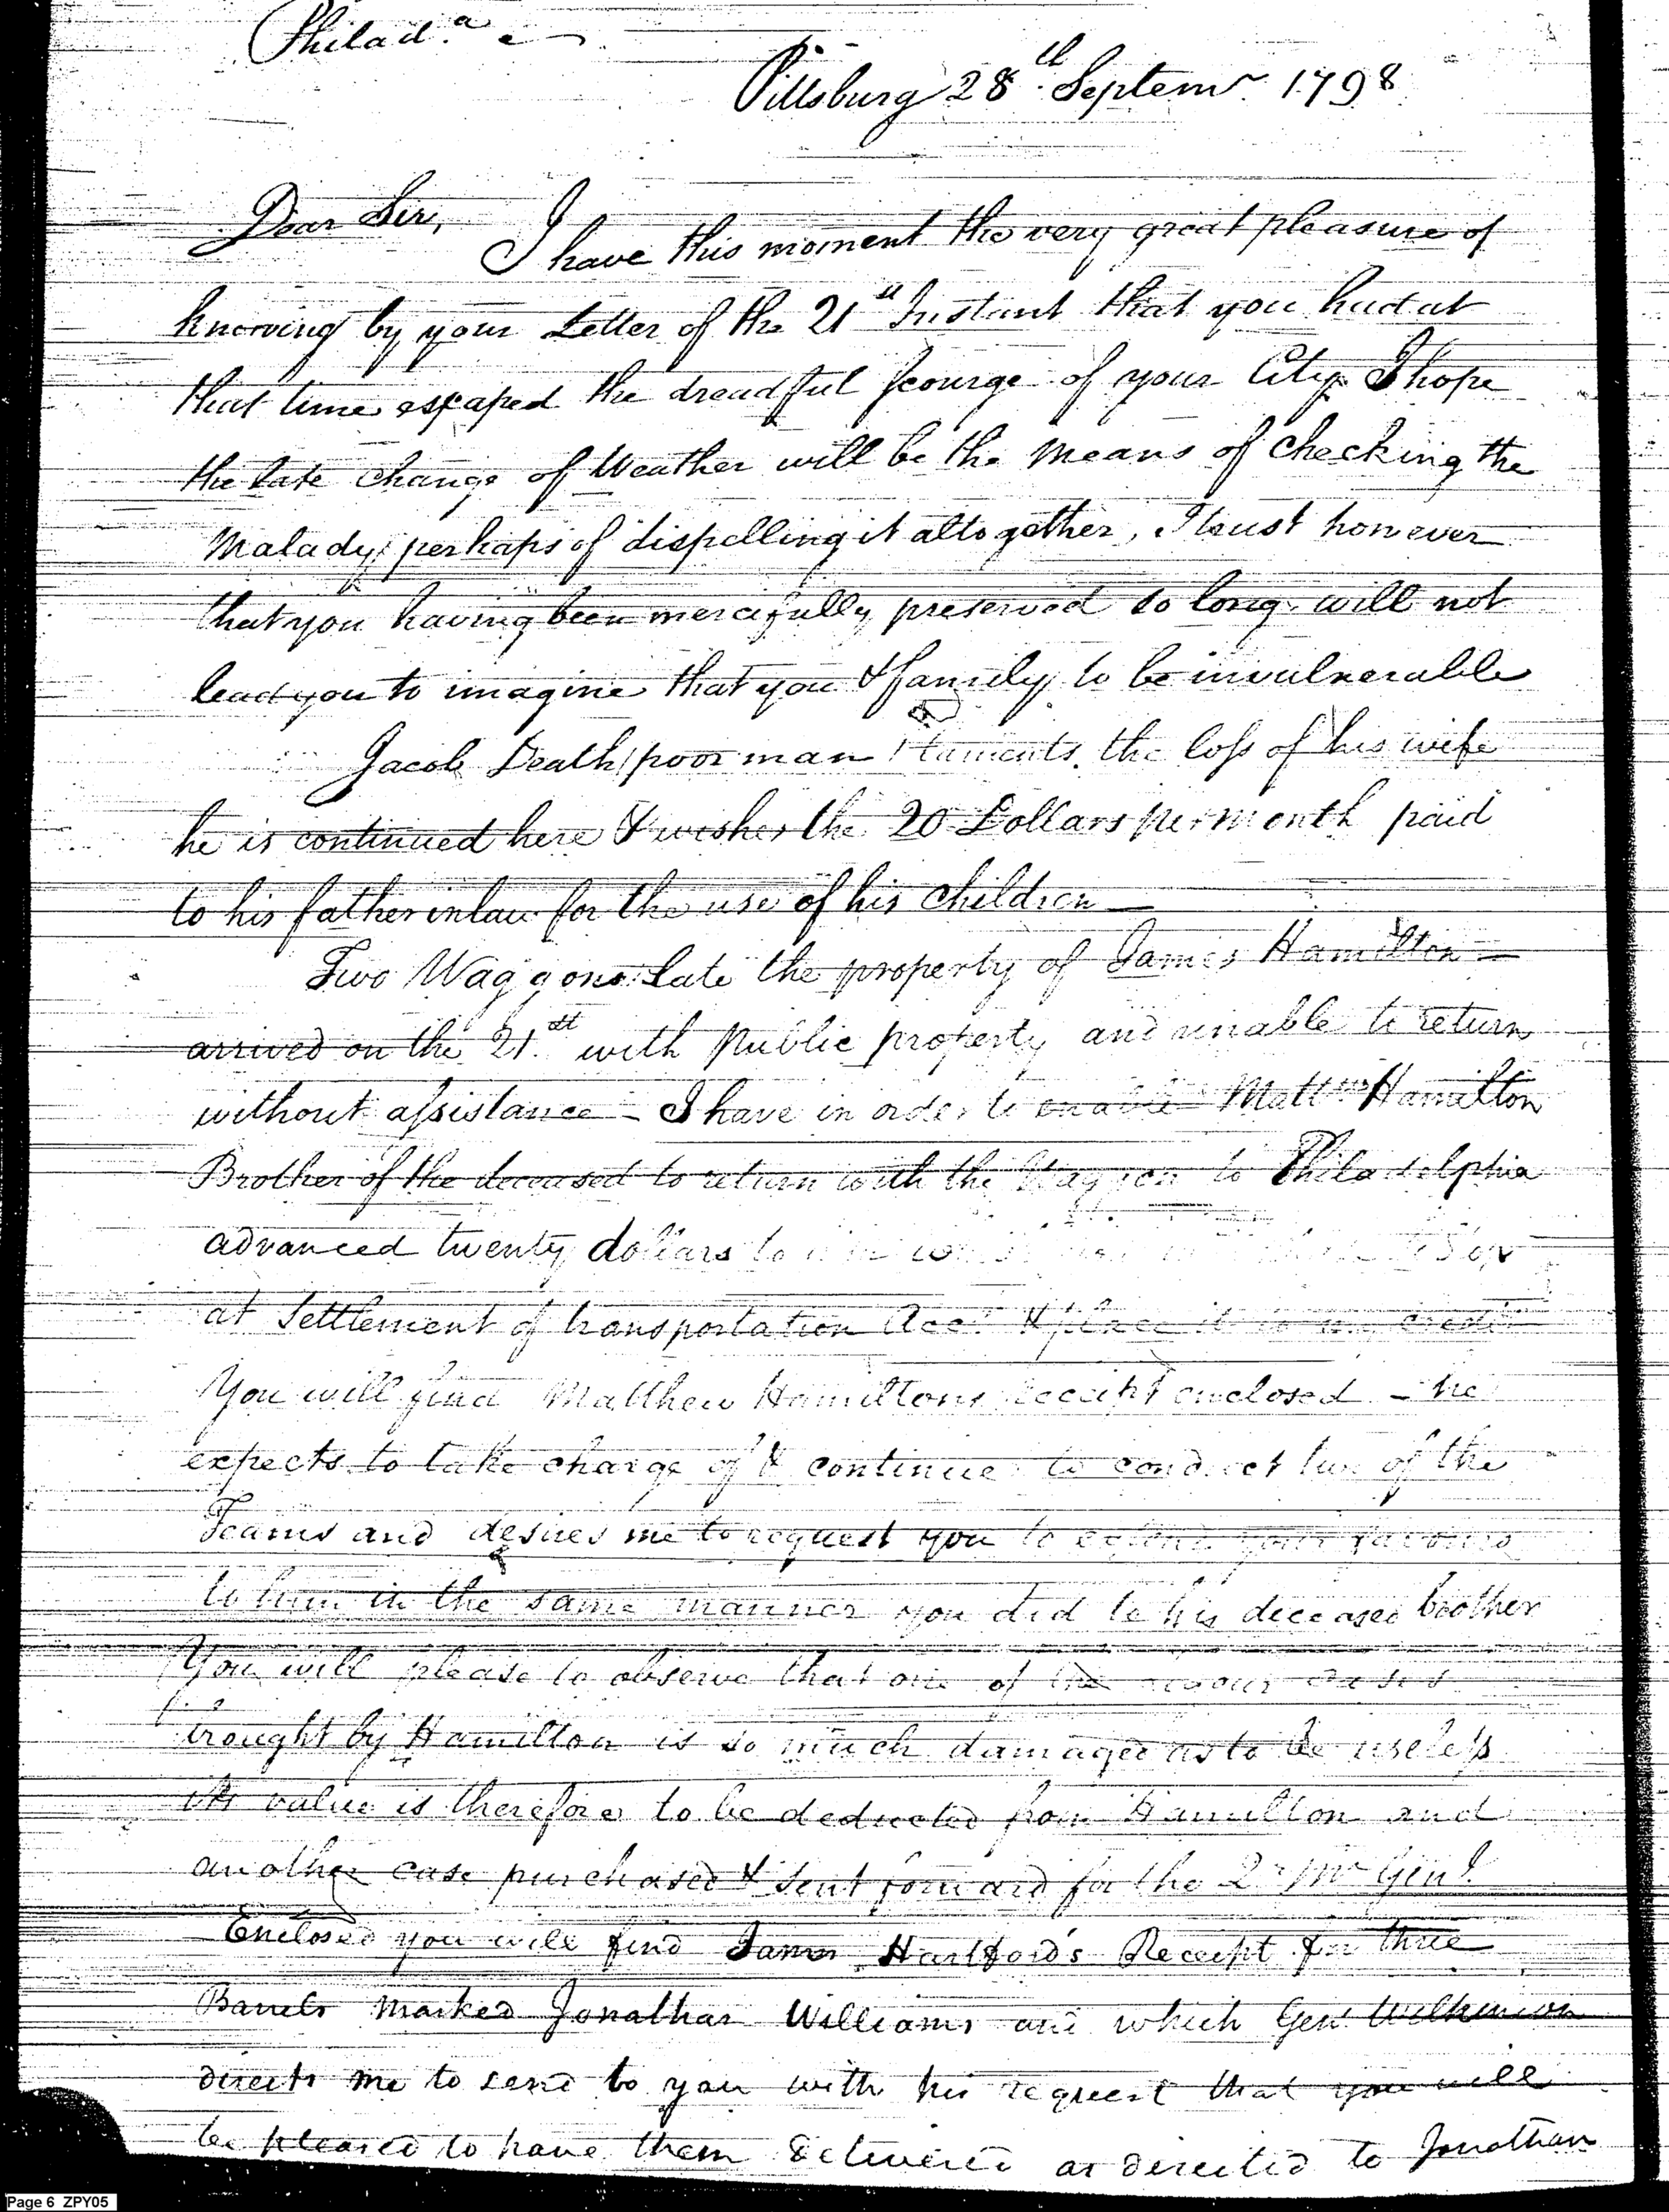 Philad.a
Pittsburg 28th. Septemr. 1798
Dear Sir,
I have this moment the very great pleasure of
knowing by your Letter of the 21st Instant that you had at
that time escaped the dreadful scourge of your City. I hope
the late change of Weather will be the means of checking the
Malady, perhaps of dispelling it altogether, I trust however
that you having been mercifully preserved so long will not
lead you to imagine that you & family to be invulnerable
Jacob Death (poor man) laments the loss of his wife
he is continued here & wishes the 20 Dollars per month paid
to his father in law for the use of his children —
Two Waggons late the property of James Hamilton —
arrived on the 21.st with public property and unable to return
without assistance — I have in order to enable Mattw Hamilton
Brother of the deceased to return with the Waggon to Philadelphia
advanced twenty dollars to
at Settlement of transportation Acct. & place it to my credit
You will find Matthew Hamiltons receipt enclosed — he
expects to take charge of & continue to conduct two of the
Teams and desires me to request you to extend your favours
to him in the same manner you did to his deceased brother
You will please to observe that one of the cases
brought by Hamilton is so much damaged as to be useless
its value is therefore to be deducted from Hamilton and
another case purchased & sent forward for the Qr Mr Genl.
Enclosed you will find James Hartford's Receipt for three
Barrels marked Jonathan Williams and which Genl Wilkinson
directs me to send to you with his request that you will
be pleased to have them delivered as directed to Jonathan
Page 6 ZPY05